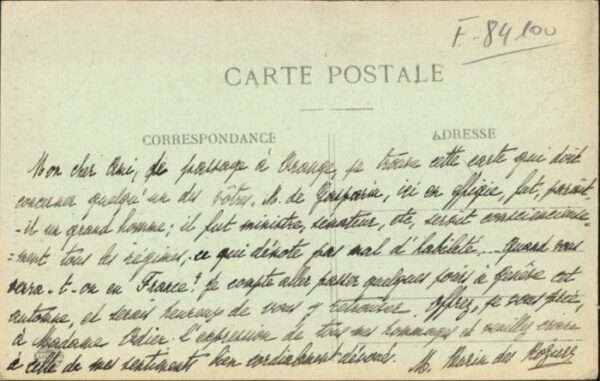 F-84100
CARTE POSTALE
CORRESPONDANCE
ADRESSE
Mon cher Ami, de passage à Orange, je trouve cette carte qui doit
concerner quelqu'un des vôtres. M. de Gasparin, ici en effigie, fut, paraît-
-il un grand homme; il fut ministre, sénateur, etc, servit consciencieuse-
=ment tous les régimes, ce qui dénote pas mal d'habileté... Quand vous
verra-t-on en France? Je compte aller passer quelques jours à Genève cet
automne, et serais heureux de vous y retrouver. Offrez, je vous prie,
à Madame Odier l'expression de tous mes hommages et veuillez croire
à celle de mes sentiments bien cordialement dévoués.
M. des